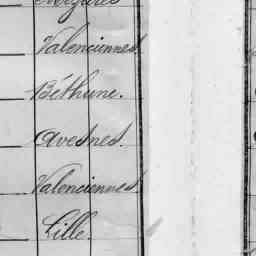 Valenciennes.
Béthune.
Avesnes.
Valenciennes.
Lille.